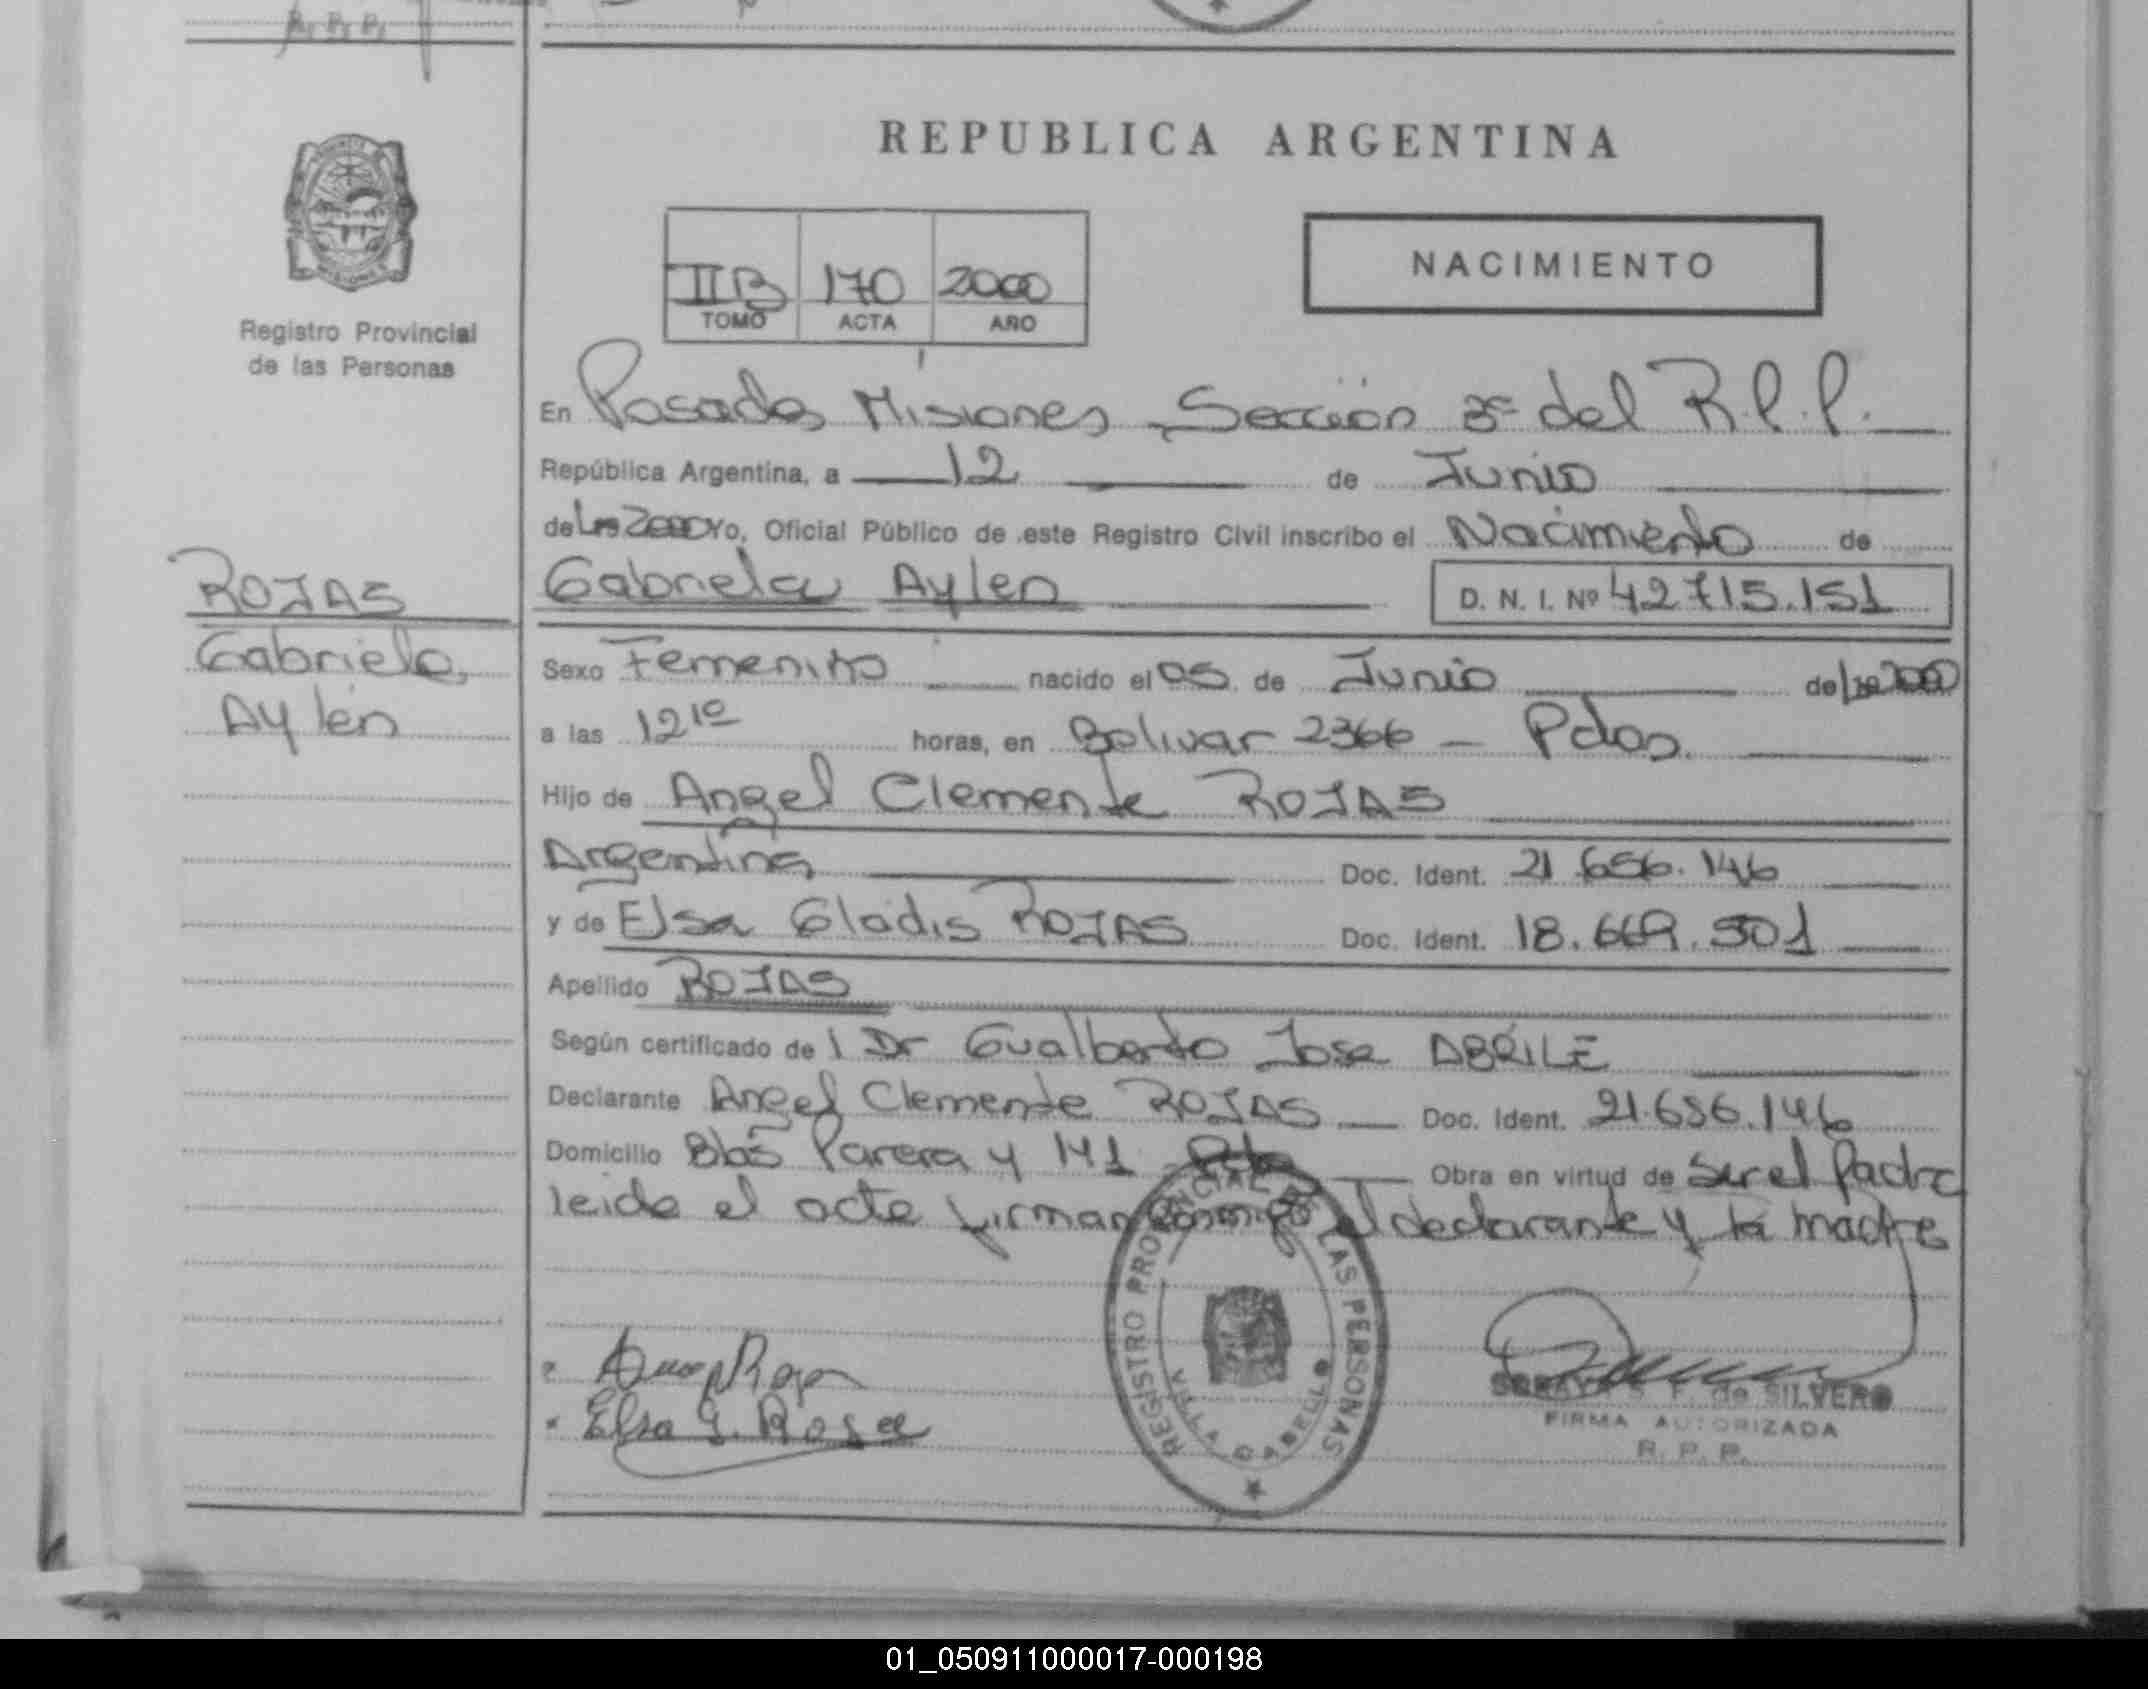 R. P. P.
REPUBLICA ARGENTINA
NACIMIENTO
IIB 170 2000
TOMO ACTA AÑO
Registro Provincial
de las Personas
En Posadas Misiones, Sección 3ª del R.P.P.
República Argentina, a 12 de Junio
de Los 2000 Yo, Oficial Público de este Registro Civil inscribo el Nacimiento de
Gabriela Aylen D. N. I. Nº 42715.151
ROJAS
Gabriela,
Aylén
Sexo Femenino nacido el 05 de Junio de los 2000
a las 12 10 horas, en Bolivar 2366 - Pdas.
Hijo de Angel Clemente ROJAS
Argentina Doc. Ident. 21.656.146
y de Elsa Gladis ROJAS Doc. Ident. 18.669.501
Apellido ROJAS
Según certificado de l Dr Gualberto Jose ABRILE
Declarante Angel Clemente ROJAS Doc. Ident. 21.656.146
Domicilio Blas Parera y 141 Obra en virtud de Ser el Padre
leida el acta firman conmigo el declarante y la madre
REGISTRO PROVINCIAL DE LAS PERSONAS
VILLA CABELLO
Elsa G. Rojas
S. F. de SILVERO
FIRMA AUTORIZADA
R. P. P.
01_050911000017-000198